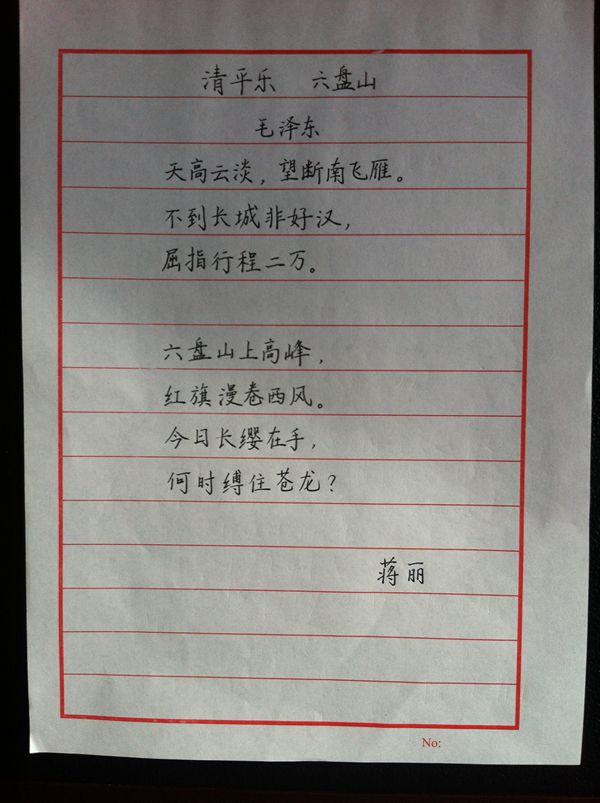 清平乐 六盘山
毛泽东
天高云淡，望断南飞雁。
不到长城非好汉，
屈指行程二万。
六盘山上高峰，
红旗漫卷西风。
今日长缨在手，
何时缚住苍龙？
蒋丽
No: